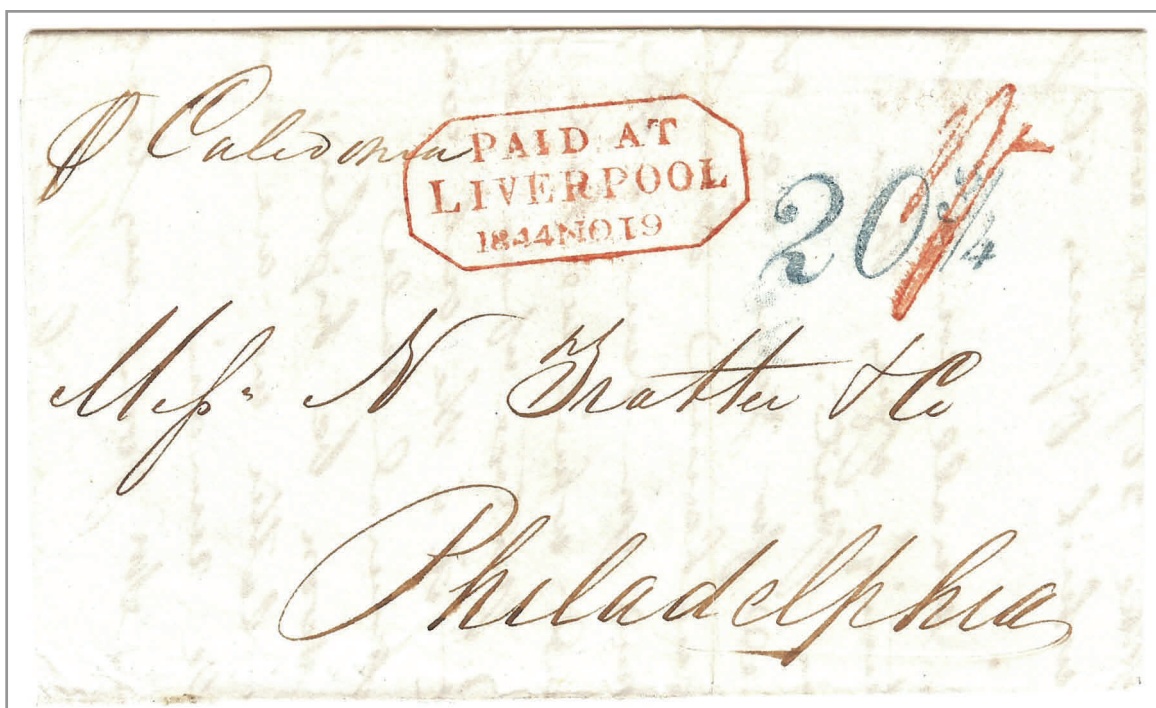 ℘ Caledonia
PAID AT
LIVERPOOL
1844NO19
20 3/4
1/-
Messrs N Trotter & Co
Philadelphia